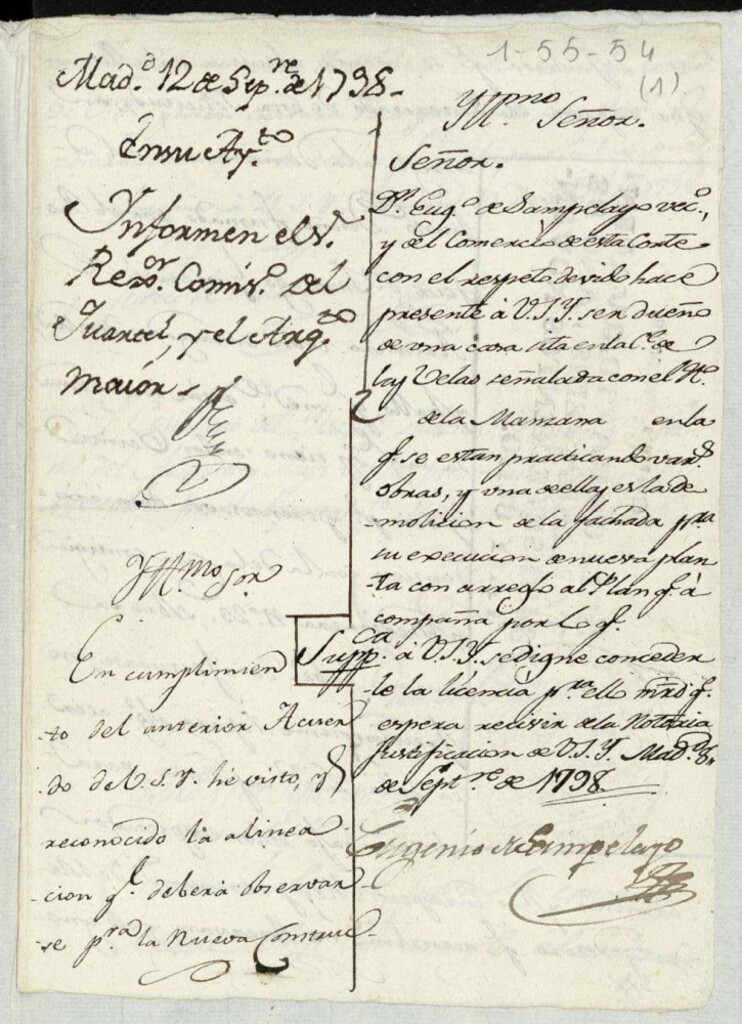 1-55-54
(1)
Mad.d 12 de Sep.re de 1798.
En su Ay.to
Informen el S.r
Rexr. Comis.o del
Quartel, y el Arq.to
maior.
Yll.mo Sor
En cumplimien
to del anterior Acuer
do de V.S.Y. he visto, y
reconocido la alinea
cion q.e deberá observar
se p.ra la Nueva Construc
Yll.mo Señor.
Señor.
D.n Eug.o de Sampelayo vec.o,
y del Comercio de esta Corte
con el respeto devido hace
presente á V.S.Y. ser dueño
de una casa sita en la C.e de
las Velas señalada con el N.o
de la Manzana en la
q.e se estan practicando var.s
obras, y una de ellas es la de
molicion de la fachada p.ra
su execucion de nueva plan
ta con arreglo al Plan q.e á
compaña por lo q.e
Supp.ca á V.S.Y. se digne conceder
le la licencia p.ra ello mrd q.e
espera recivir de la Notoria
justificacion de V.S.Y. Mad.d 8,,
de Sept.re de 1798.
Eugenio de Sampelayo